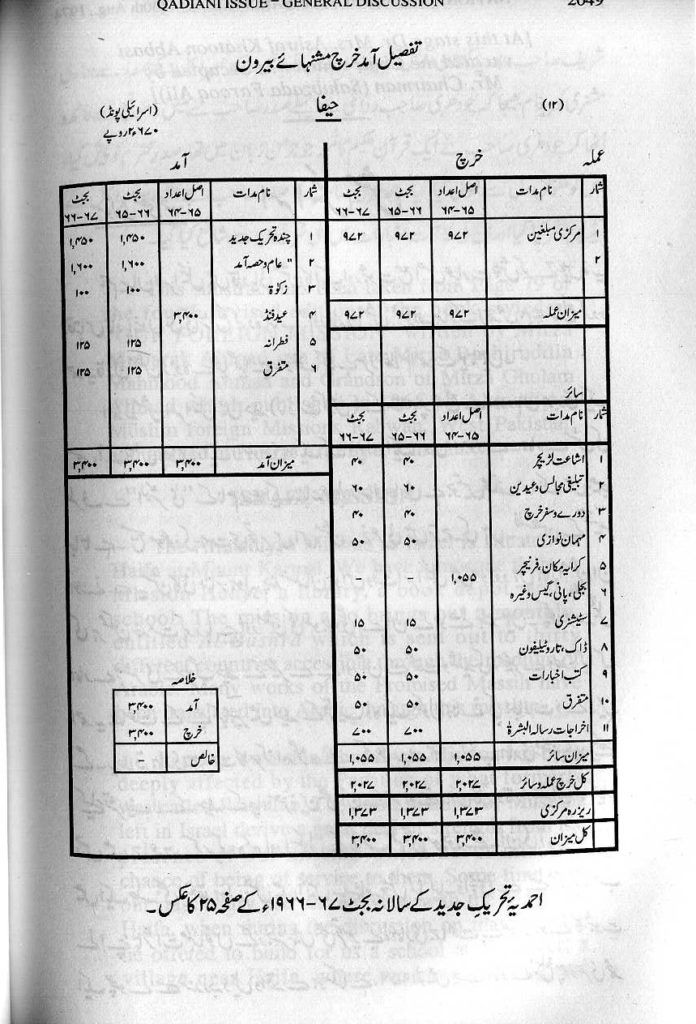 QADIANI ISSUE – GENERAL DISCUSSION 2049
تفصیل آمد خرچ مشنہائے بیرون
(۱۲) حیفا (اسرائیلی پونڈ)
۲۶۷۰ روپے
عملہ خرچ آمد
شمار نام مدات اصل اعداد ۶۴-۶۵ بجٹ ۶۵-۶۶ بجٹ ۶۶-۶۷
۱ مرکزی مبلغین ۹۷۲ ۹۷۲ ۹۷۲
۲
میزان عملہ ۹۷۲ ۹۷۲ ۹۷۲
سائر
شمار نام مدات اصل اعداد ۶۴-۶۵ بجٹ ۶۵-۶۶ بجٹ ۶۶-۶۷
۱ اشاعت لڑیچر ۴۰ ۴۰
۲ تبلیغی مجالس وعیدین ۶۰ ۶۰
۳ دورے و سفر خرچ ۴۰ ۴۰
۴ مہمان نوازی ۵۰ ۵۰
۵ کرایہ مکان، فرنیچر ۱,۰۵۵ - -
۶ بجلی، پانی، گیس وغیرہ
۷ سٹیشنری ۱۵ ۱۵
۸ ڈاک، تار و ٹیلیفون ۵۰ ۵۰
۹ کتب اخبارات ۵۰ ۵۰
۱۰ متفرق ۵۰ ۵۰
۱۱ اخراجات رسالہ البشریٰ ۷۰۰ ۷۰۰
میزان سائر ۱,۰۵۵ ۱,۰۵۵ ۱,۰۵۵
کل خرچ عملہ و سائر ۲,۰۲۷ ۲,۰۲۷ ۲,۰۲۷
ریزرہ مرکزی ۱,۳۷۳ ۱,۳۷۳ ۱,۳۷۳
کل میزان ۳,۴۰۰ ۳,۴۰۰ ۳,۴۰۰
شمار نام مدات اصل اعداد ۶۴-۶۵ بجٹ ۶۵-۶۶ بجٹ ۶۶-۶۷
۱ چندہ تحریک جدید ۱,۴۵۰ ۱,۴۵۰
۲ " عام وحصہ آمد ۱,۶۰۰ ۱,۶۰۰
۳ زکوٰۃ ۱۰۰ ۱۰۰
۴ عید فنڈ ۳,۴۰۰
۵ فطرانہ ۱۲۵ ۱۲۵
۶ متفرق ۱۲۵ ۱۲۵
میزان آمد ۳,۴۰۰ ۳,۴۰۰ ۳,۴۰۰
خلاصہ
آمد ۳,۴۰۰
خرچ ۳,۴۰۰
خالص -
احمدیہ تحریک جدید کے سالانہ بجٹ ۶۷-۱۹۶۶ء کے صفحہ ۲۵ کا عکس۔